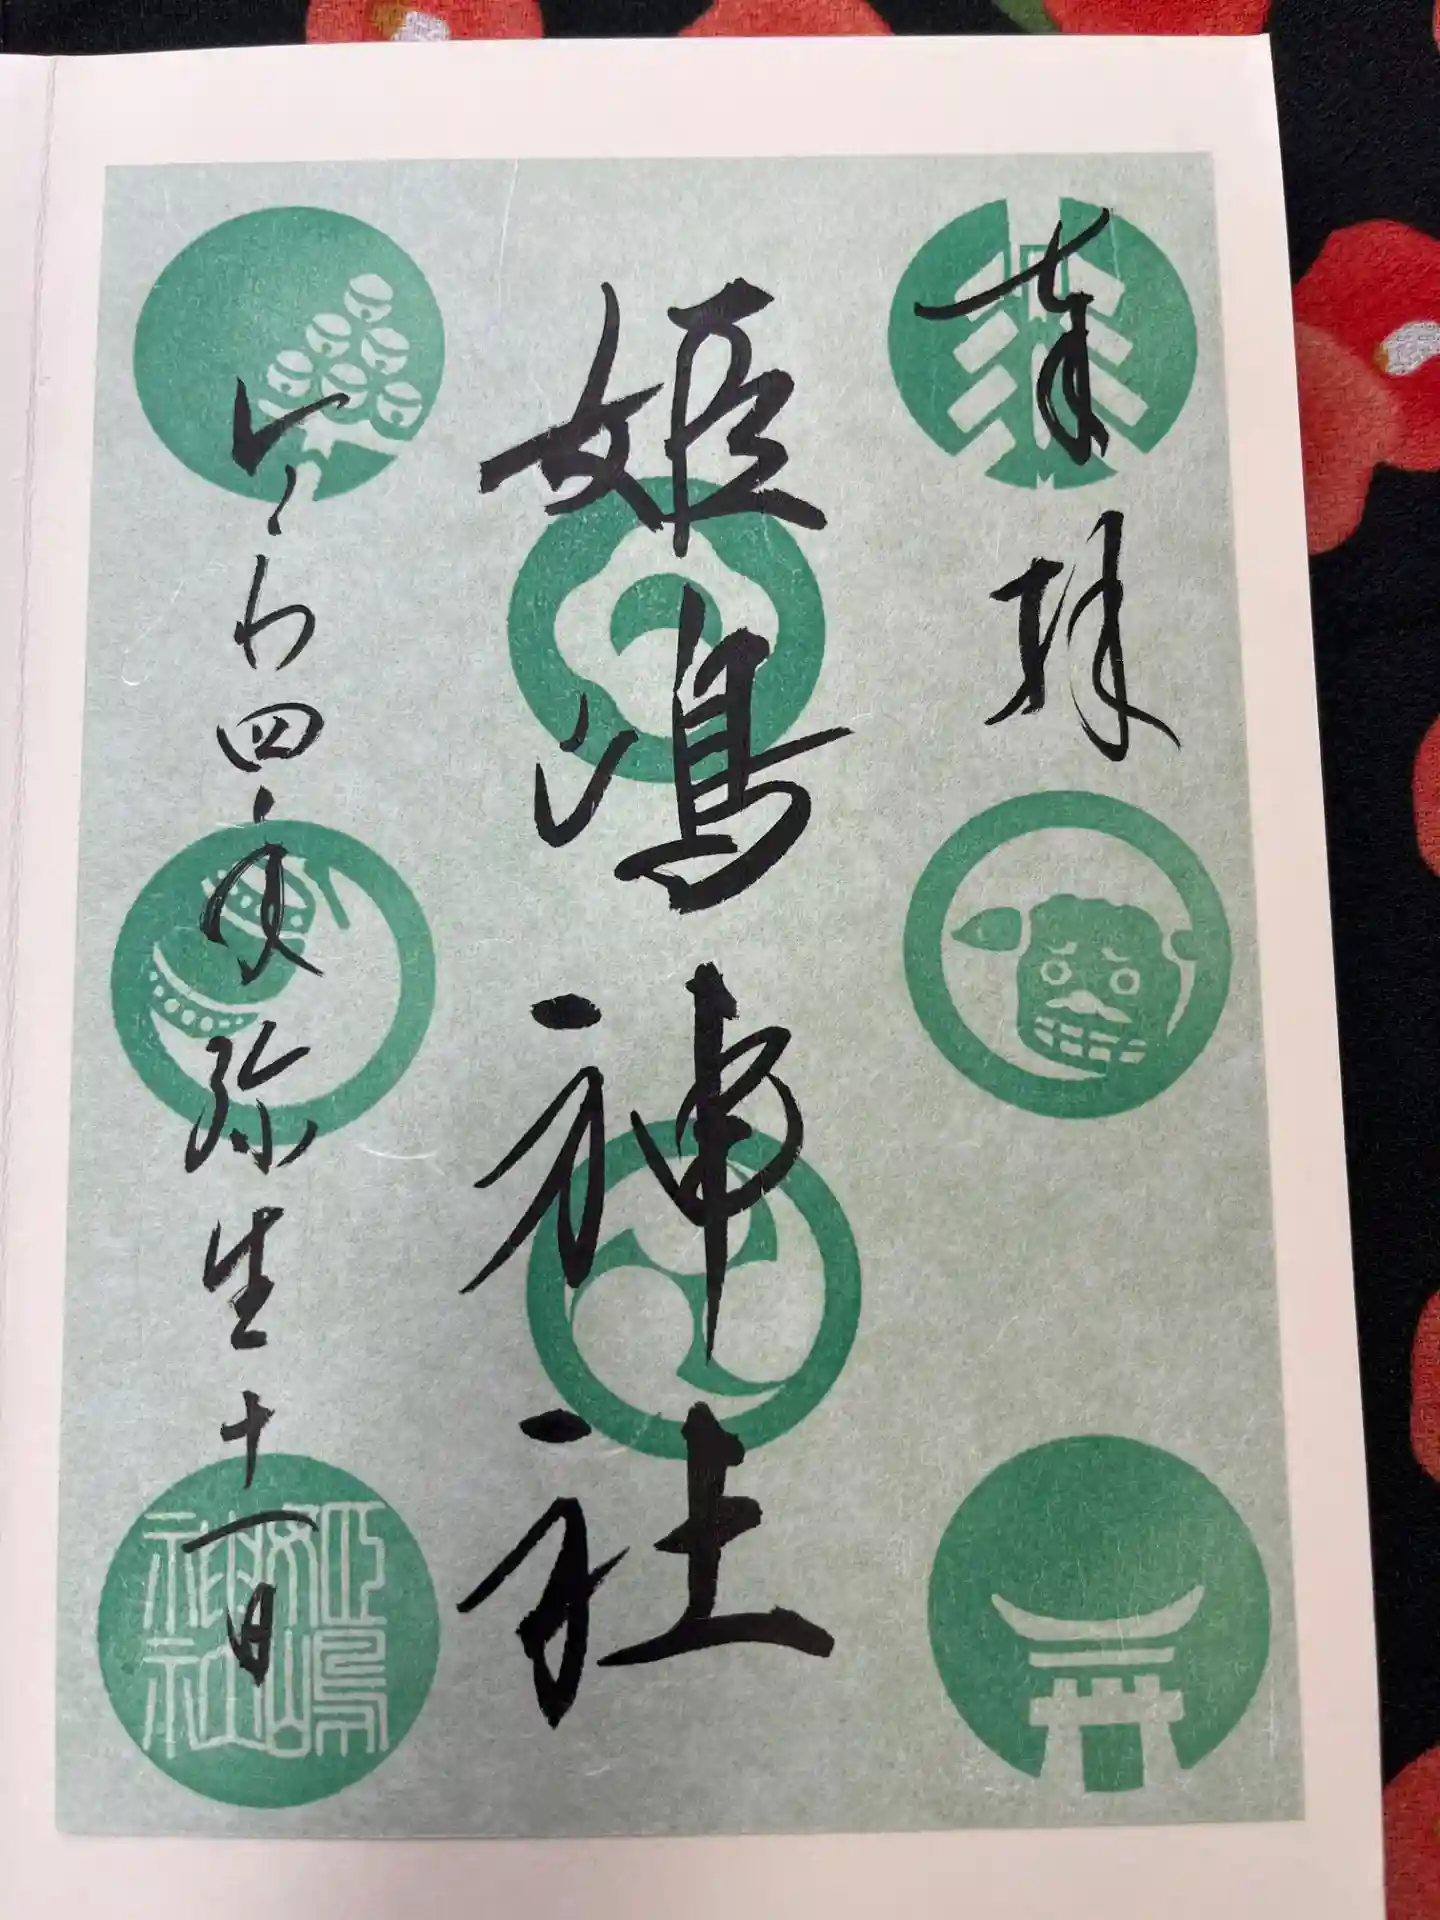 奉拝
姫嶋神社
令和四年弥生十一日
姫嶋
神社